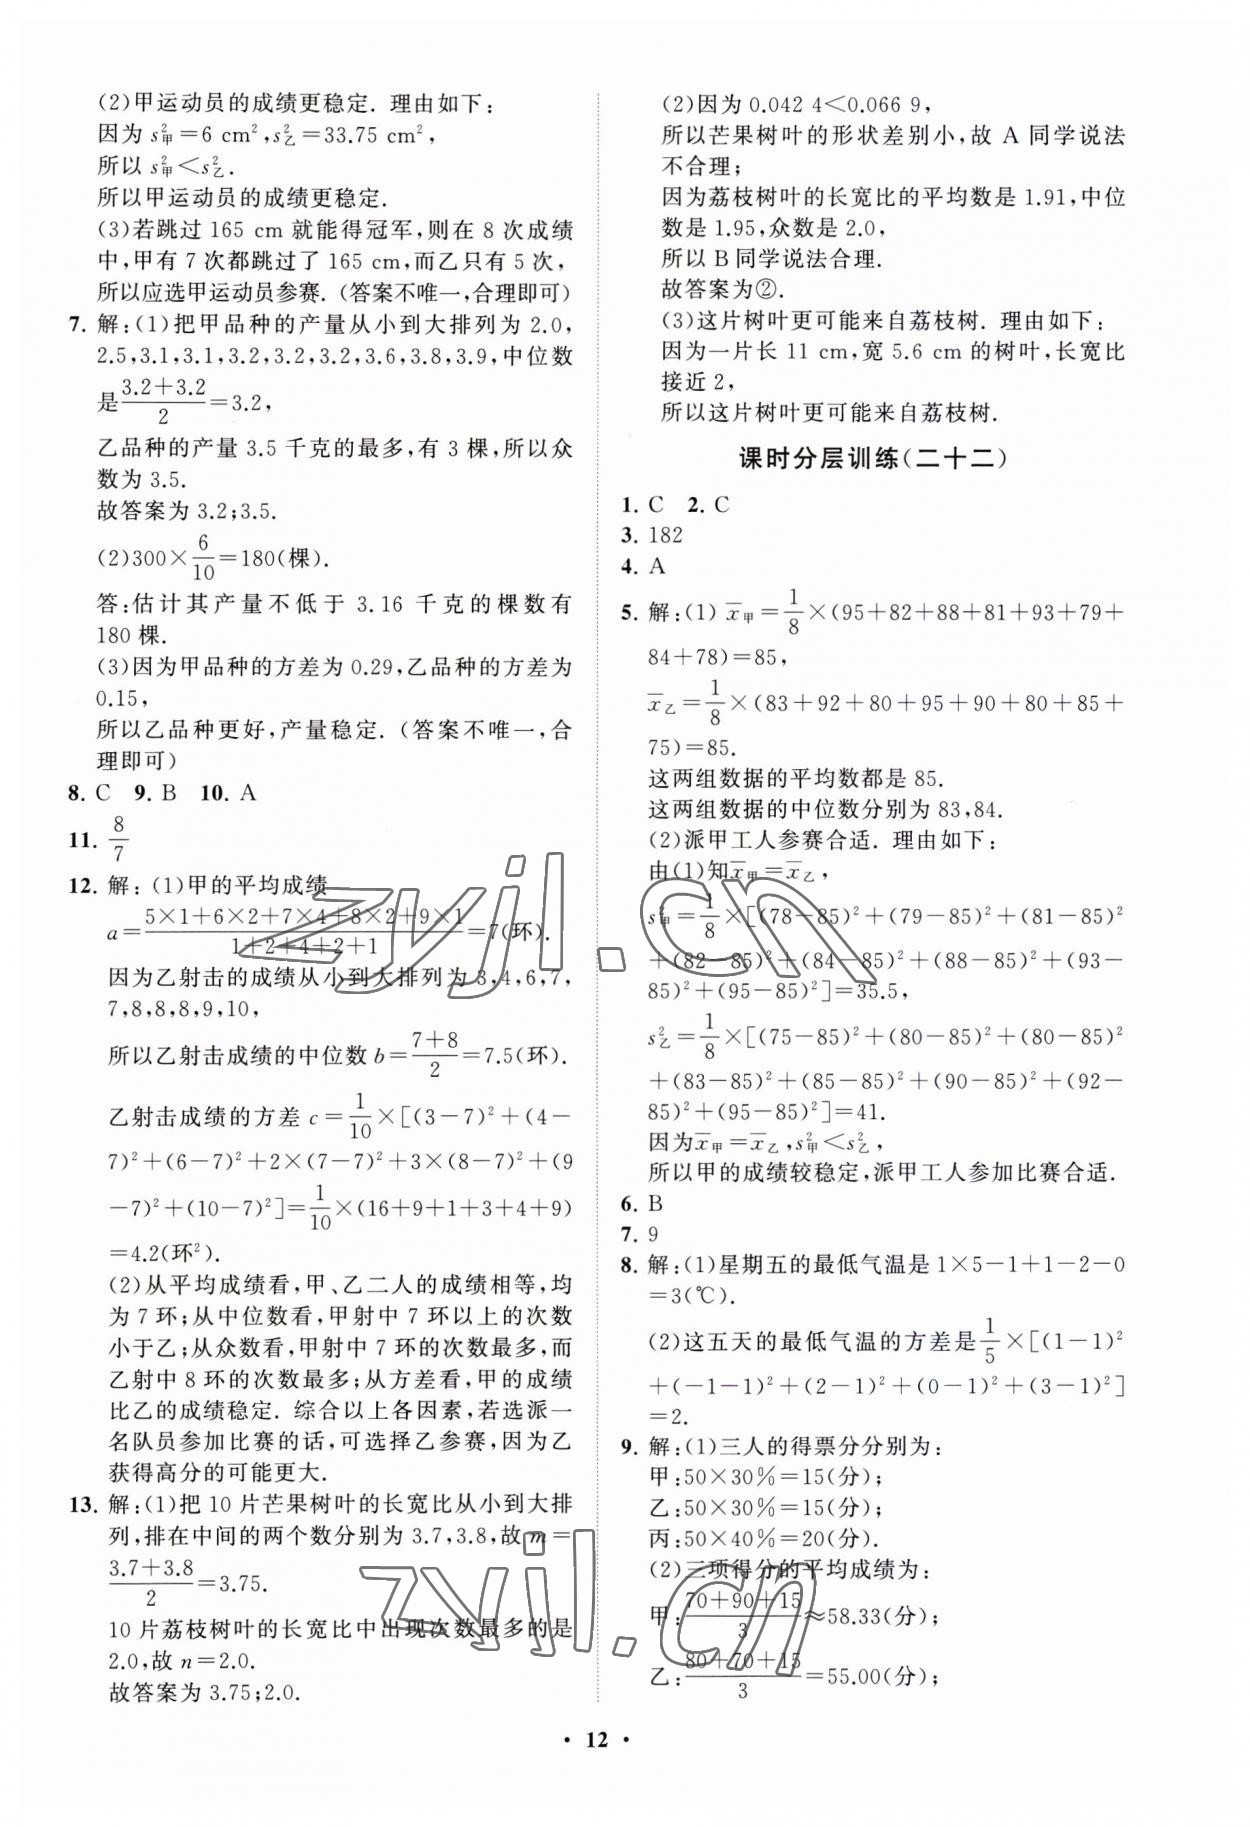 (2)甲运动员的成绩更稳定. 理由如下:
因为 s²甲=6 cm²,s²乙=33.75 cm²,
所以 s²甲<s²乙.
所以甲运动员的成绩更稳定.
(3)若跳过 165 cm 就能得冠军,则在 8 次成绩
中,甲有 7 次都跳过了 165 cm,而乙只有 5 次,
所以应选甲运动员参赛.(答案不唯一,合理即可)
7. 解:(1)把甲品种的产量从小到大排列为 2.0,
2.5,3.1,3.1,3.2,3.2,3.2,3.6,3.8,3.9,中位数
是(3.2+3.2)/2=3.2,
乙品种的产量 3.5 千克的最多,有 3 棵,所以众
数为 3.5.
故答案为 3.2;3.5.
(2)300×6/10=180(棵).
答:估计其产量不低于 3.16 千克的棵数有
180 棵.
(3)因为甲品种的方差为 0.29,乙品种的方差为
0.15,
所以乙品种更好,产量稳定.(答案不唯一,合
理即可)
8. C 9. B 10. A
11. 8/7
12. 解:(1)甲的平均成绩
a=(5×1+6×2+7×4+8×2+9×1)/(1+2+4+2+1)=7(环).
因为乙射击的成绩从小到大排列为 3,4,6,7,
7,8,8,8,9,10,
所以乙射击成绩的中位数 b=(7+8)/2=7.5(环).
乙射击成绩的方差 c=1/10×[(3-7)²+(4-
7)²+(6-7)²+2×(7-7)²+3×(8-7)²+(9
-7)²+(10-7)²]=1/10×(16+9+1+3+4+9)
=4.2(环²).
(2)从平均成绩看,甲、乙二人的成绩相等,均
为 7 环;从中位数看,甲射中 7 环以上的次数
小于乙;从众数看,甲射中 7 环的次数最多,而
乙射中 8 环的次数最多;从方差看,甲的成绩
比乙的成绩稳定. 综合以上各因素,若选派一
名队员参加比赛的话,可选择乙参赛,因为乙
获得高分的可能更大.
13. 解:(1)把 10 片芒果树叶的长宽比从小到大排
列,排在中间的两个数分别为 3.7,3.8,故 m=
(3.7+3.8)/2=3.75.
10 片荔枝树叶的长宽比中出现次数最多的是
2.0,故 n=2.0.
故答案为 3.75;2.0.
(2)因为 0.042 4<0.066 9,
所以芒果树叶的形状差别小,故 A 同学说法
不合理;
因为荔枝树叶的长宽比的平均数是 1.91,中位
数是 1.95,众数是 2.0,
所以 B 同学说法合理.
故答案为②.
(3)这片树叶更可能来自荔枝树. 理由如下:
因为一片长 11 cm,宽 5.6 cm 的树叶,长宽比
接近 2,
所以这片树叶更可能来自荔枝树.
课时分层训练(二十二)
1. C 2. C
3. 182
4. A
5. 解:(1) x̄甲=1/8×(95+82+88+81+93+79+
84+78)=85,
x̄乙=1/8×(83+92+80+95+90+80+85+
75)=85.
这两组数据的平均数都是 85.
这两组数据的中位数分别为 83,84.
(2)派甲工人参赛合适. 理由如下:
由(1)知x̄甲=x̄乙,
s²甲=1/8×[(78-85)²+(79-85)²+(81-85)²
+(82-85)²+(84-85)²+(88-85)²+(93-
85)²+(95-85)²]=35.5,
s²乙=1/8×[(75-85)²+(80-85)²+(80-85)²
+(83-85)²+(85-85)²+(90-85)²+(92-
85)²+(95-85)²]=41.
因为x̄甲=x̄乙,s²甲<s²乙,
所以甲的成绩较稳定,派甲工人参加比赛合适.
6. B
7. 9
8. 解:(1)星期五的最低气温是 1×5-1+1-2-0
=3(℃).
(2)这五天的最低气温的方差是1/5×[(1-1)²
+(-1-1)²+(2-1)²+(0-1)²+(3-1)²]
=2.
9. 解:(1)三人的得票分分别为:
甲:50×30%=15(分);
乙:50×30%=15(分);
丙:50×40%=20(分).
(2)三项得分的平均成绩为:
甲:(70+90+15)/3≈58.33(分);
乙:(80+70+15)/3=55.00(分);
• 12 •
zyjl.cn
zyjl.cn